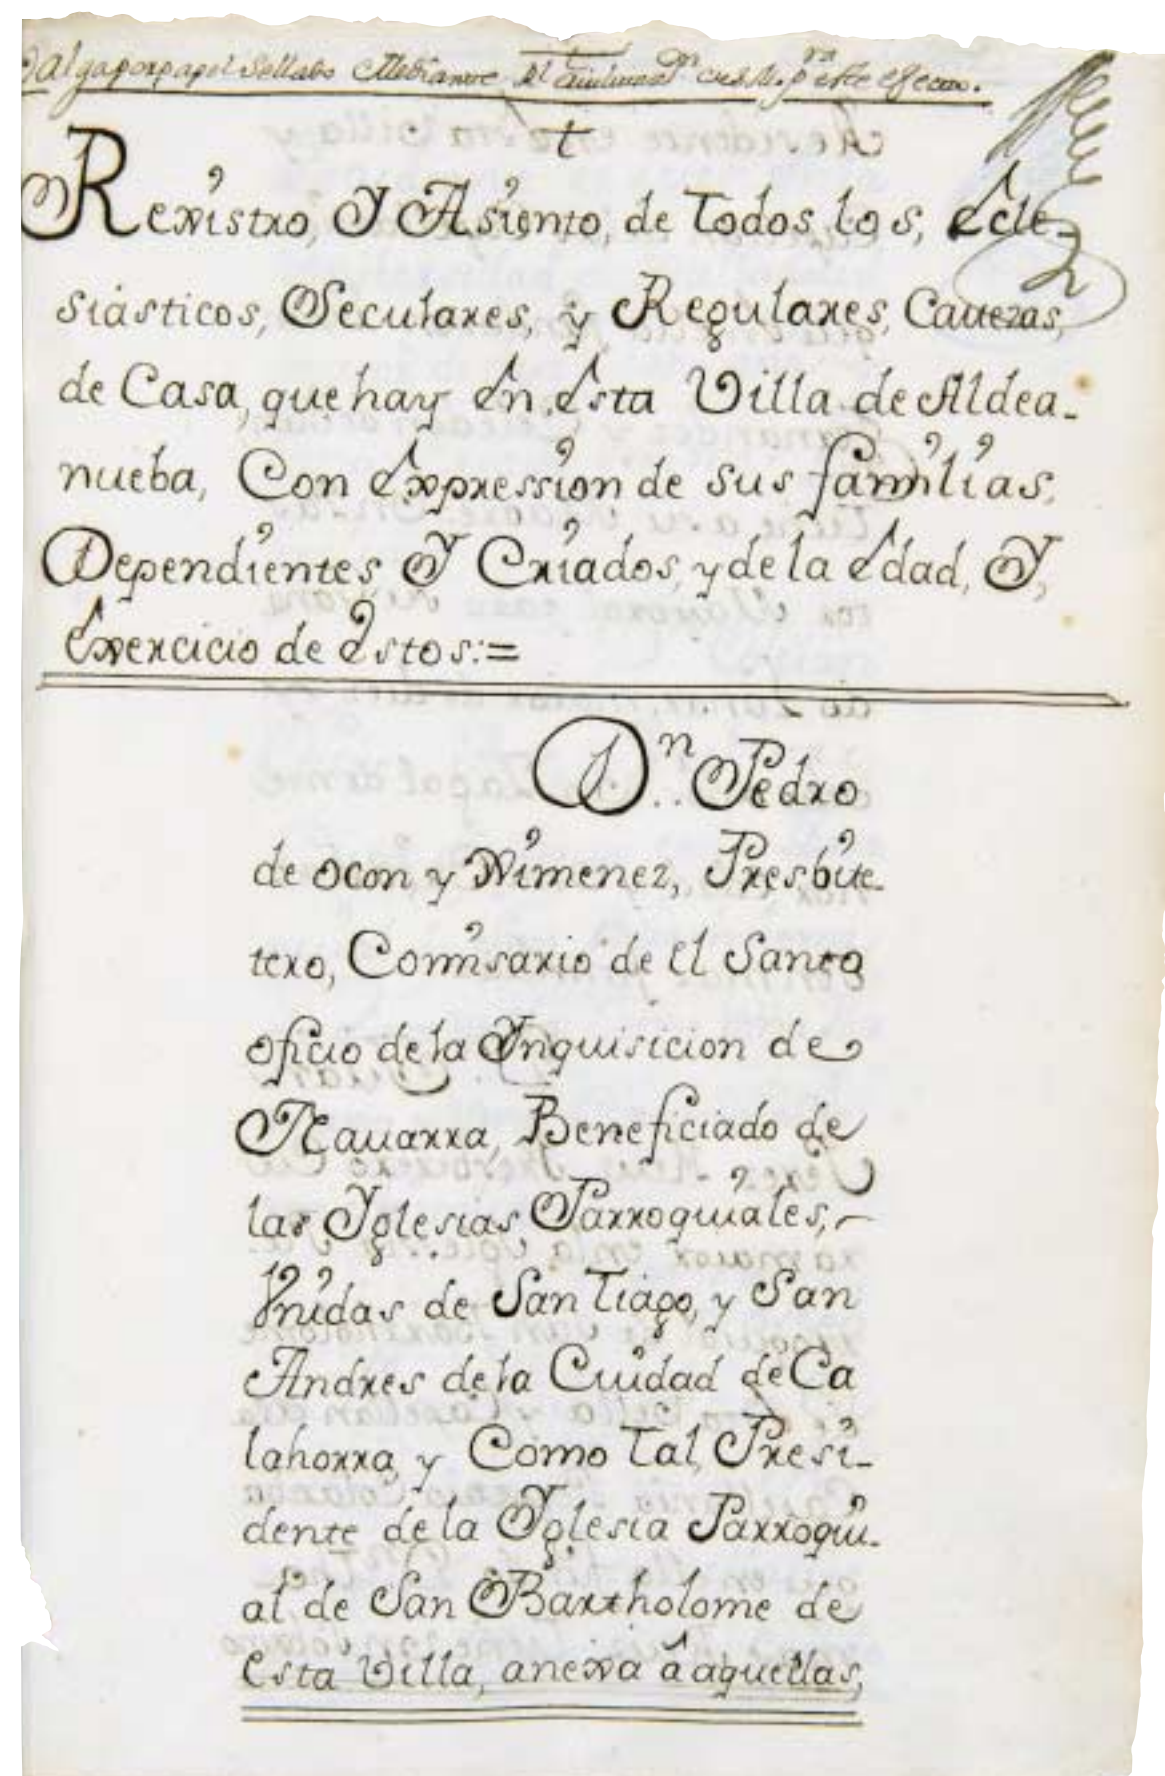 Valga por papel Sellado Mediante el
t
Rexistro, Y Asiento, de Todos los, Ecle-
siásticos, Seculares, y Regulares, Cauezas,
de Casa, que hay En Esta Villa de Aldea-
nueba, Con Expression de sus familias,
Dependientes Y Criados, y de la Edad, Y,
Exercicio de Estos:=
Dn.. Pedro
de Ocon y Ximenez, Presbite-
tero, Comisario de El Santo
oficio de la Ynquisicion de
Nauarra, Beneficiado de
las Yglesias, Parroquiales,-
Vnidas de San Tiago, y San
Andres de la Ciudad de Ca
lahorra, y Como Tal, Presi-
dente de la Yglesia Parroqui-
al de San Bartholome de
Esta Villa, anexa â aquellas,